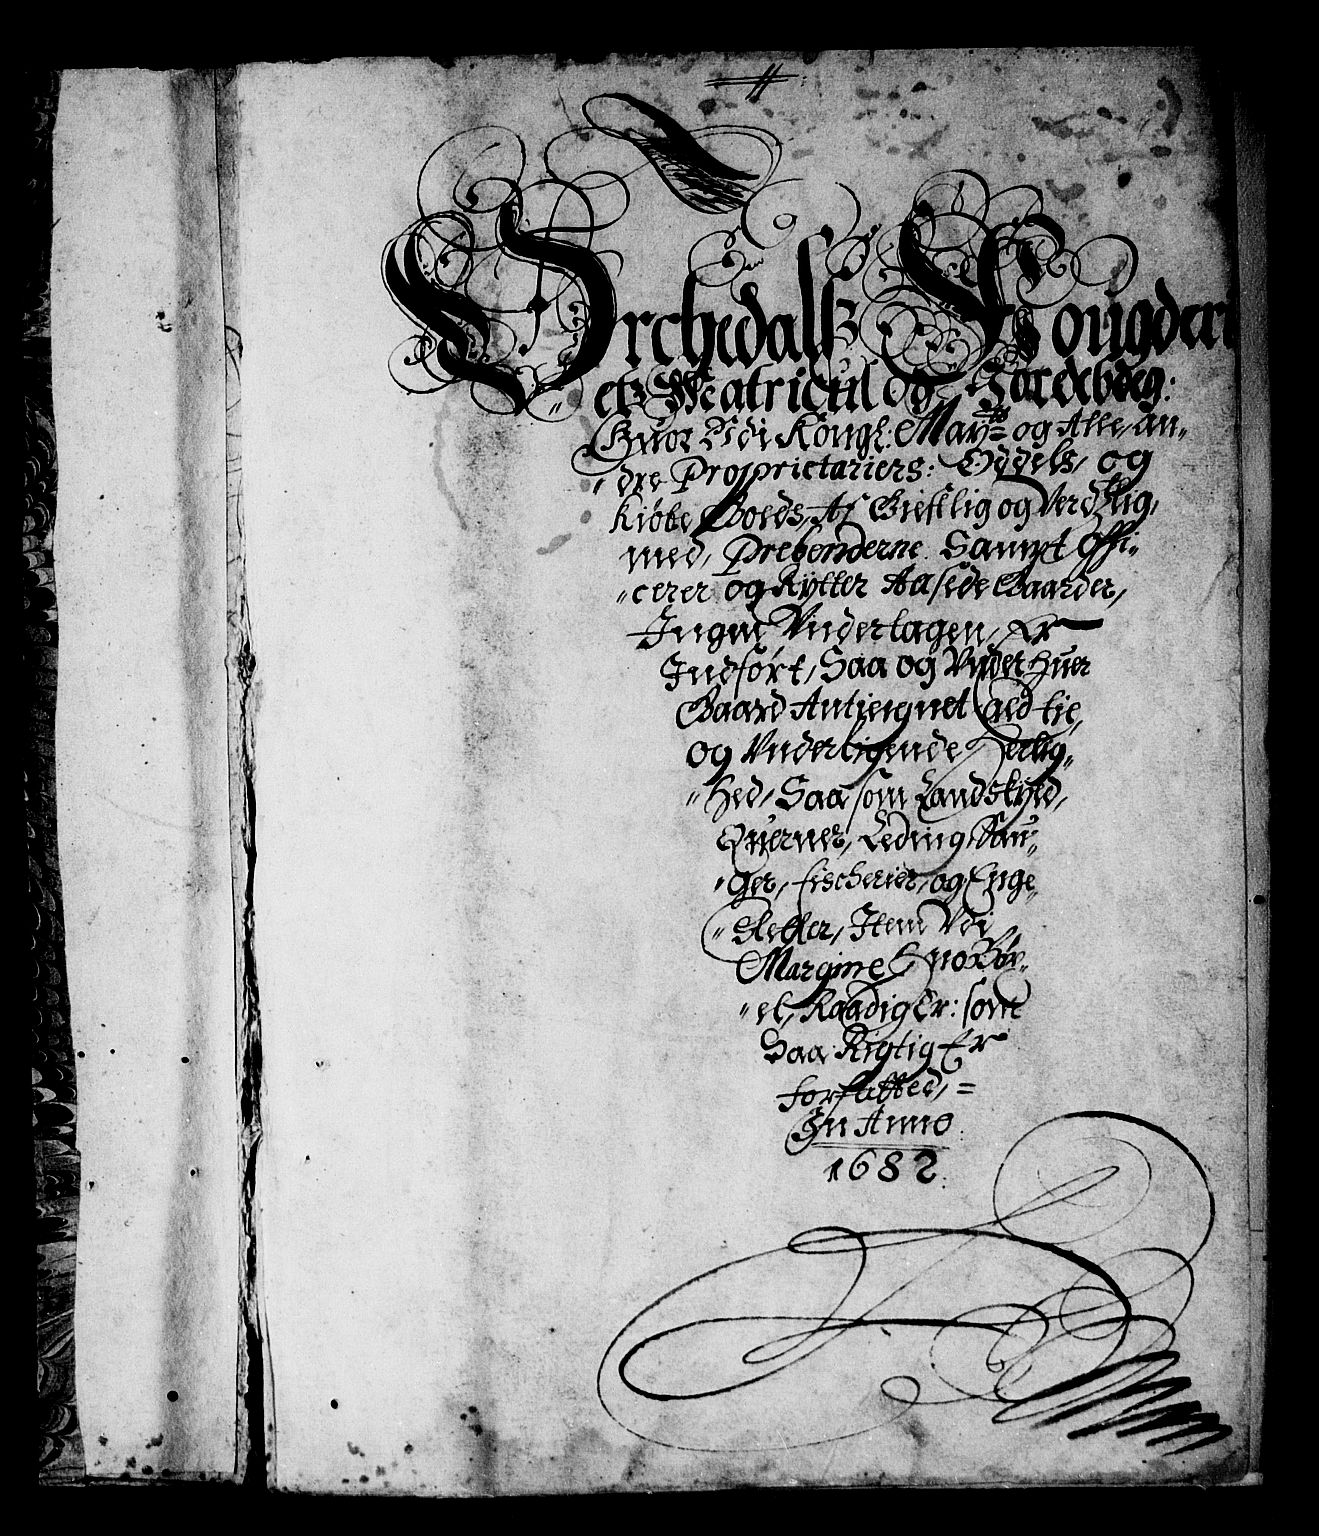 Orchedalß Fougderi
etz Matricul og Jordebóeg:
Huor Udi Kongl: May:tts og Alle, an„
„dre Proprietariers: Oddels, og
Kiøbe Goeds, Af Gieistlig og Verdslig,
med, Prebenderne. Sampt Offi„
„cerer og Rytter Aasæde Gaarder,
Ingen Undertagen, Er
Indført, Saa og Under huer
Gaard Antieignet ald tie,
og Underligende Herlig„
„hed, Saa som Landskyld,
Querner, Leding, Sau„
„ger, fischerier, og Enge
„Sletter, Item Udi
Margine, Hno Bøx„
„el, Raadig Er: som
Saa Rigtig Er
forfatted, =
In Anno.
1682.